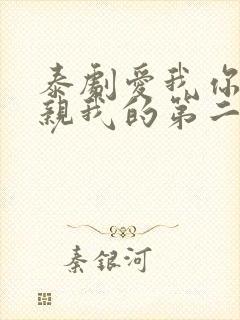 泰劇愛我你
親我的第二
秦銀河